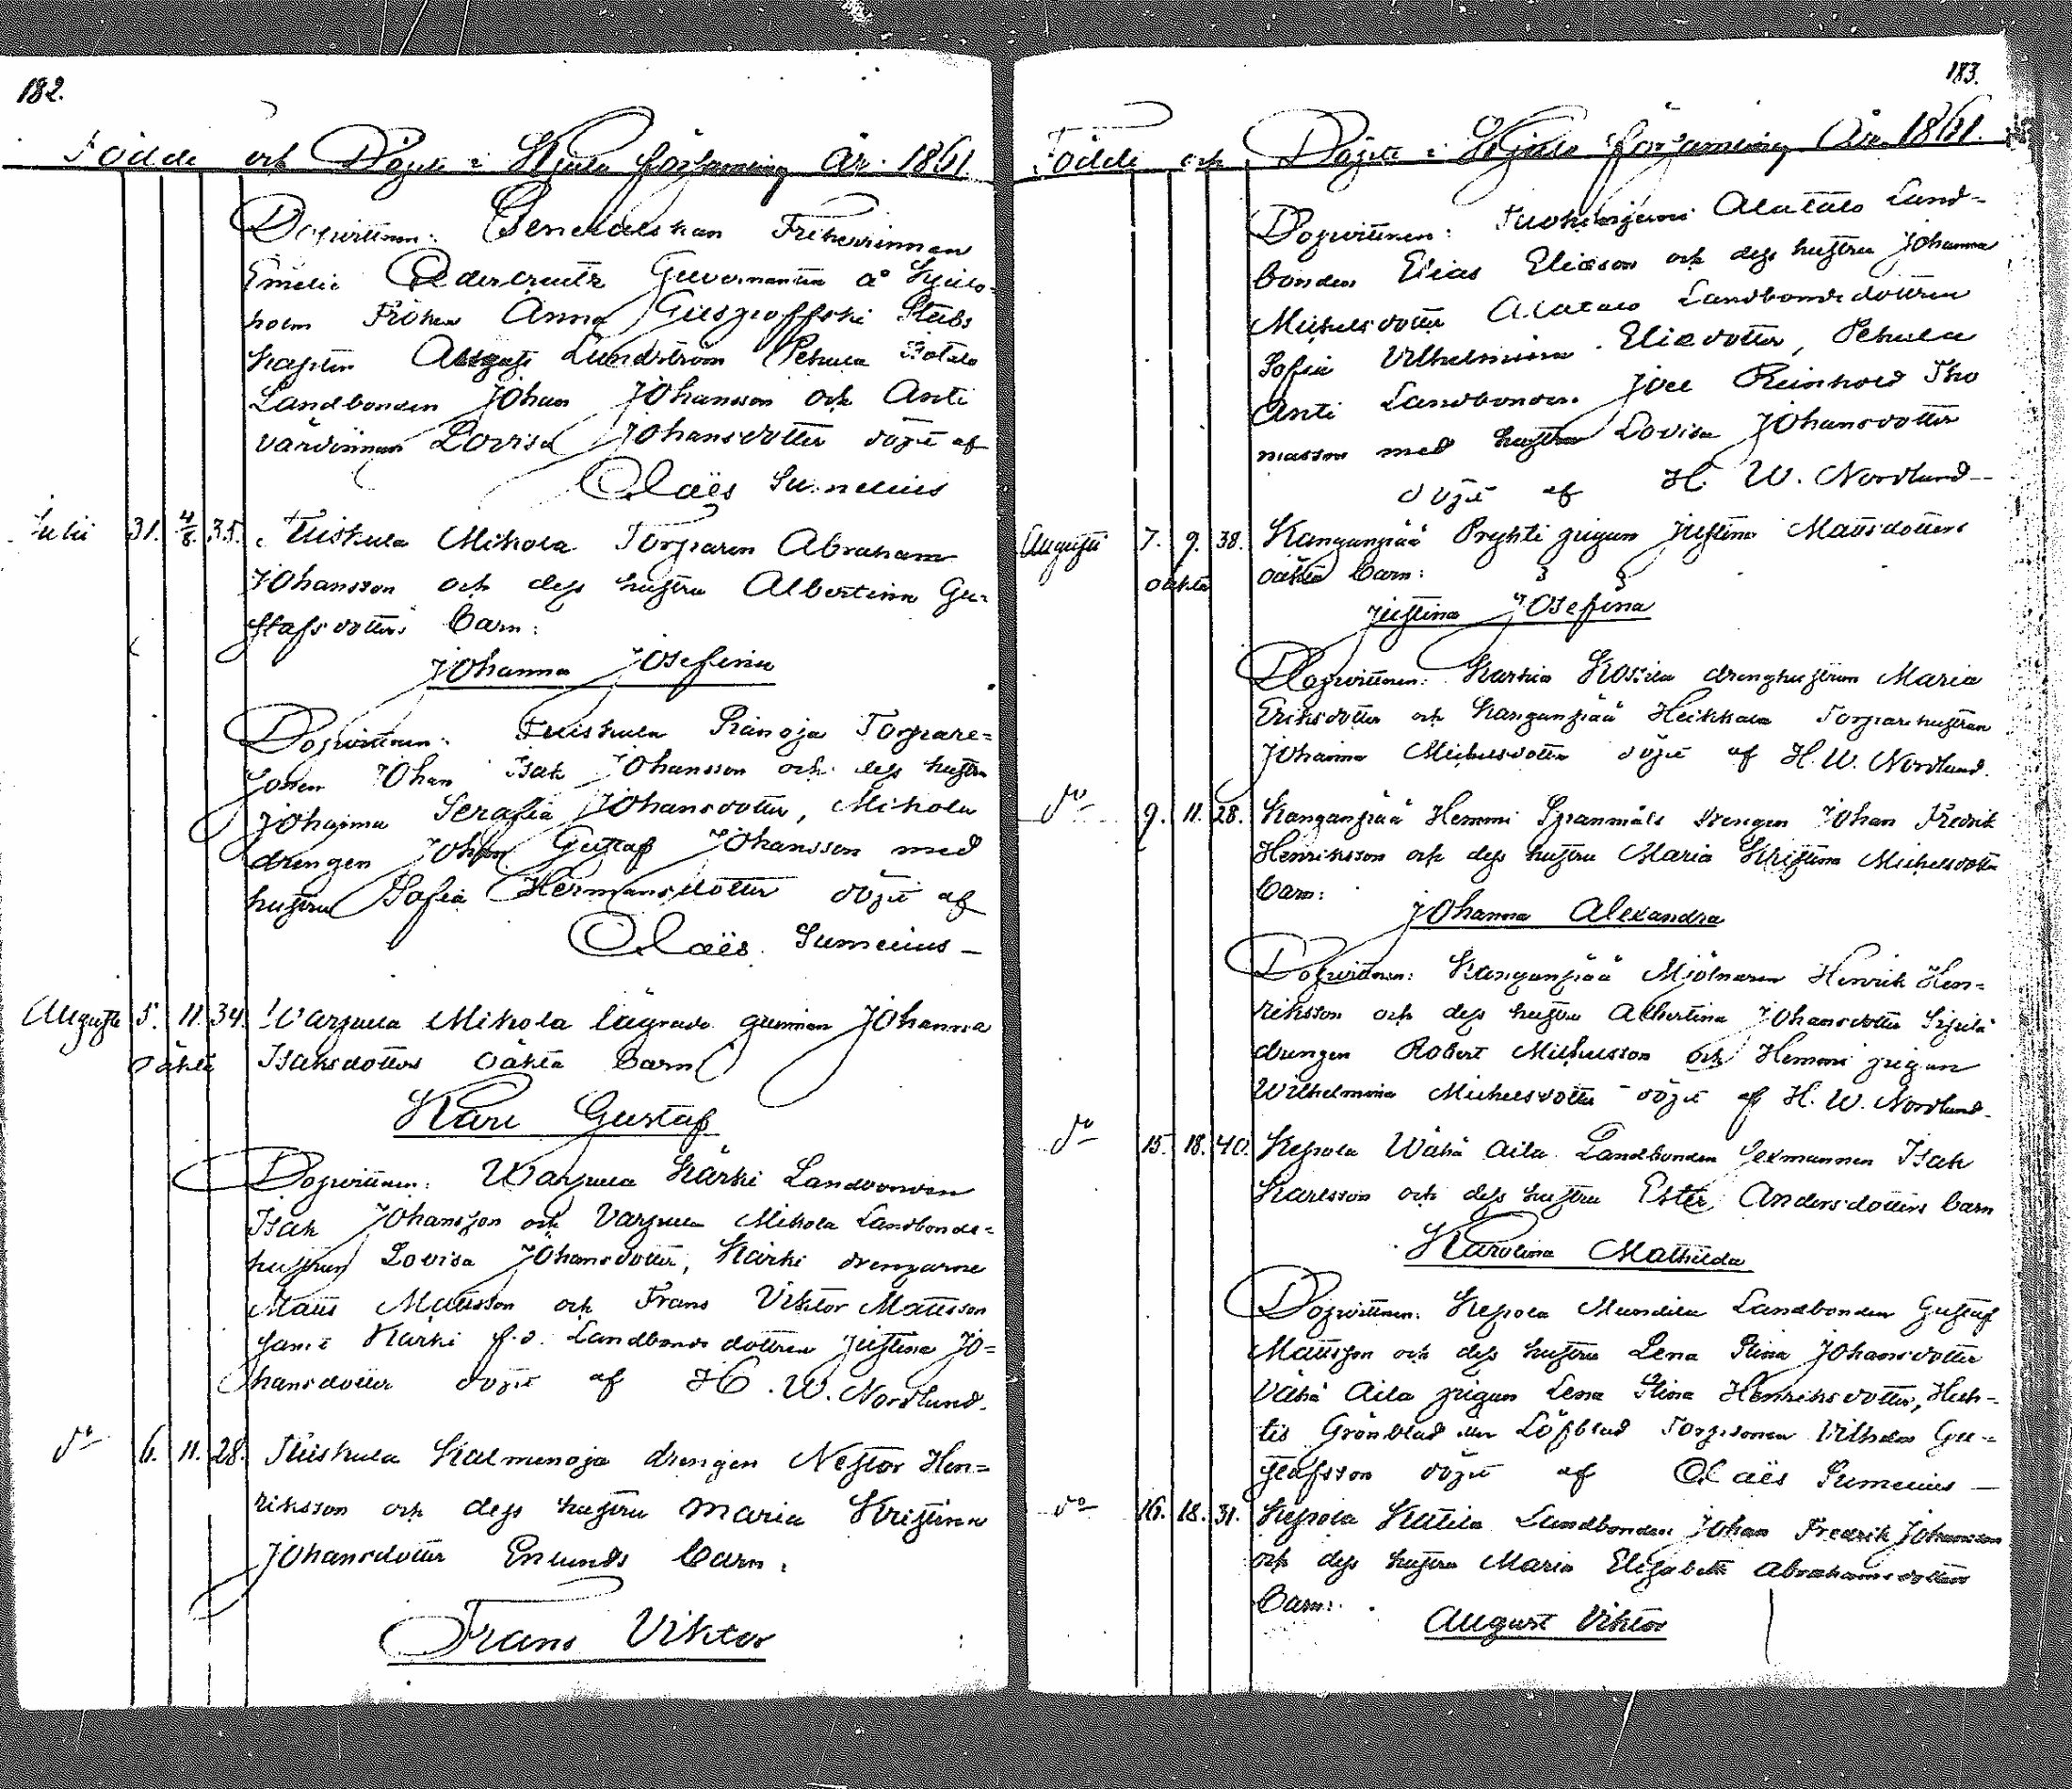 182.
Födde och Döpte i Kjulo församling År 1861
Dopvittnen: Generalskan Friherrinnan
Emelie Cedercreutz Guvernanten å Kjulo-
holm Fröken Anna Stabs
kapten August Lundström Pehula Isotalo
Landbonden Johan Johansson och Anti
värdinnan Lovisa Johansdotter döpt af
Claës Sumelius
Julii 31. 4/8 35. Tuiskula Mikola Torparen Abraham
Johansson och dess hustru Albertina Gu-
stafsdotters barn:
Johanna Josefina
Dopvittnen: Tuiskula Rianoja Torpare-
sonen Johan Isak Johansson och dess hustru
Johanna Serafia Johansdotter, Mikola
drengen Johan Gustaf Johansson med
hustru Sofia Hermansdotter döpt af
Claës Sumelius –
Augusti 5. 11. 34. Warpula Mikola lägrade qvinnan Johanna
oäkta Isaksdotters oäkta barn
Karl Gustaf
Dopvittnen: Warpula Kärki Landbonden
Isak Johansson och Varpula Mikola Landbonde-
hustrun Lovisa Johansdotter, Kärki drengarne
Matts Mattsson och Frans Viktor Mattsson
samt Kärki f.d. Landbonde dottren Justina Jo-
hansdotter döpt af H. W. Nordlund.
do 6. 11. 28. Tuiskula Kalmenoja drengen Nestor Hen-
riksson och dess hustru Maria Kristina
Johansdotter Enlunds barn:
Frans Viktor
183.
Födde och Döpte i Kjulo församling År 1861.
Dopvittnen: Alatalo Land-
bonden Elias Eliasson och dess hustru Johanna
Michelsdotter Alatalo Landbondedottren
Sofia Vilhelmina Eliedotter, Pehula
Anti Landbonden Joel Reinhold Tho
masson med hustru Lovisa Johansdotter
döpt af H. W. Nordlund –
Augusti 7. 9. 38. Kanganpää Pryhti pigan Justina Mattsdotters
oäkta oäkta barn:
Justina Josefina
Dopvittnen: Karhia Kosila drenghustrun Maria
Eriksdotter och Kanganpää Heikkala Torparehustrun
Johanna Michelsdotter döpt af H. W. Nordlund.
do 9. 11. 28. Kanganpää Hemmi Spanmåls drengen Johan Fredrik
Henriksson och dess hustru Maria Kristina Michelsdotters
barn:
Johanna Alexandra
Dopvittnen: Kanganpää Mjölnaren Henrik Hen-
riksson och dess hustru Albertina Johansdotter
drengen Robert Michelsson och Hemmi pigan
Wilhelmina Michelsdotter döpt af H. W. Nordlund.
do 15. 18. 40. Kepola Wähä Aila Landbonden Sexmannen Isak
Karlsson och dess hustru Ester Andersdotters barn
Karolina Mathilda
Dopvittnen: Kepola Mundila Landbonden Gustaf
Mattsson och dess hustru Lena Stina Johansdotter
Vähä Aila pigan Lena Stina Henriksdotter,
Grönblad Löfblad Vilhelm Gu-
stafsson döpt af Claës Sumelius –
do 16. 18. 31. Kepola Katila Landbonden Johan Fredrik Johansson
och dess hustru Maria Elisabeth Abrahamsdotters
barn:
August Viktor